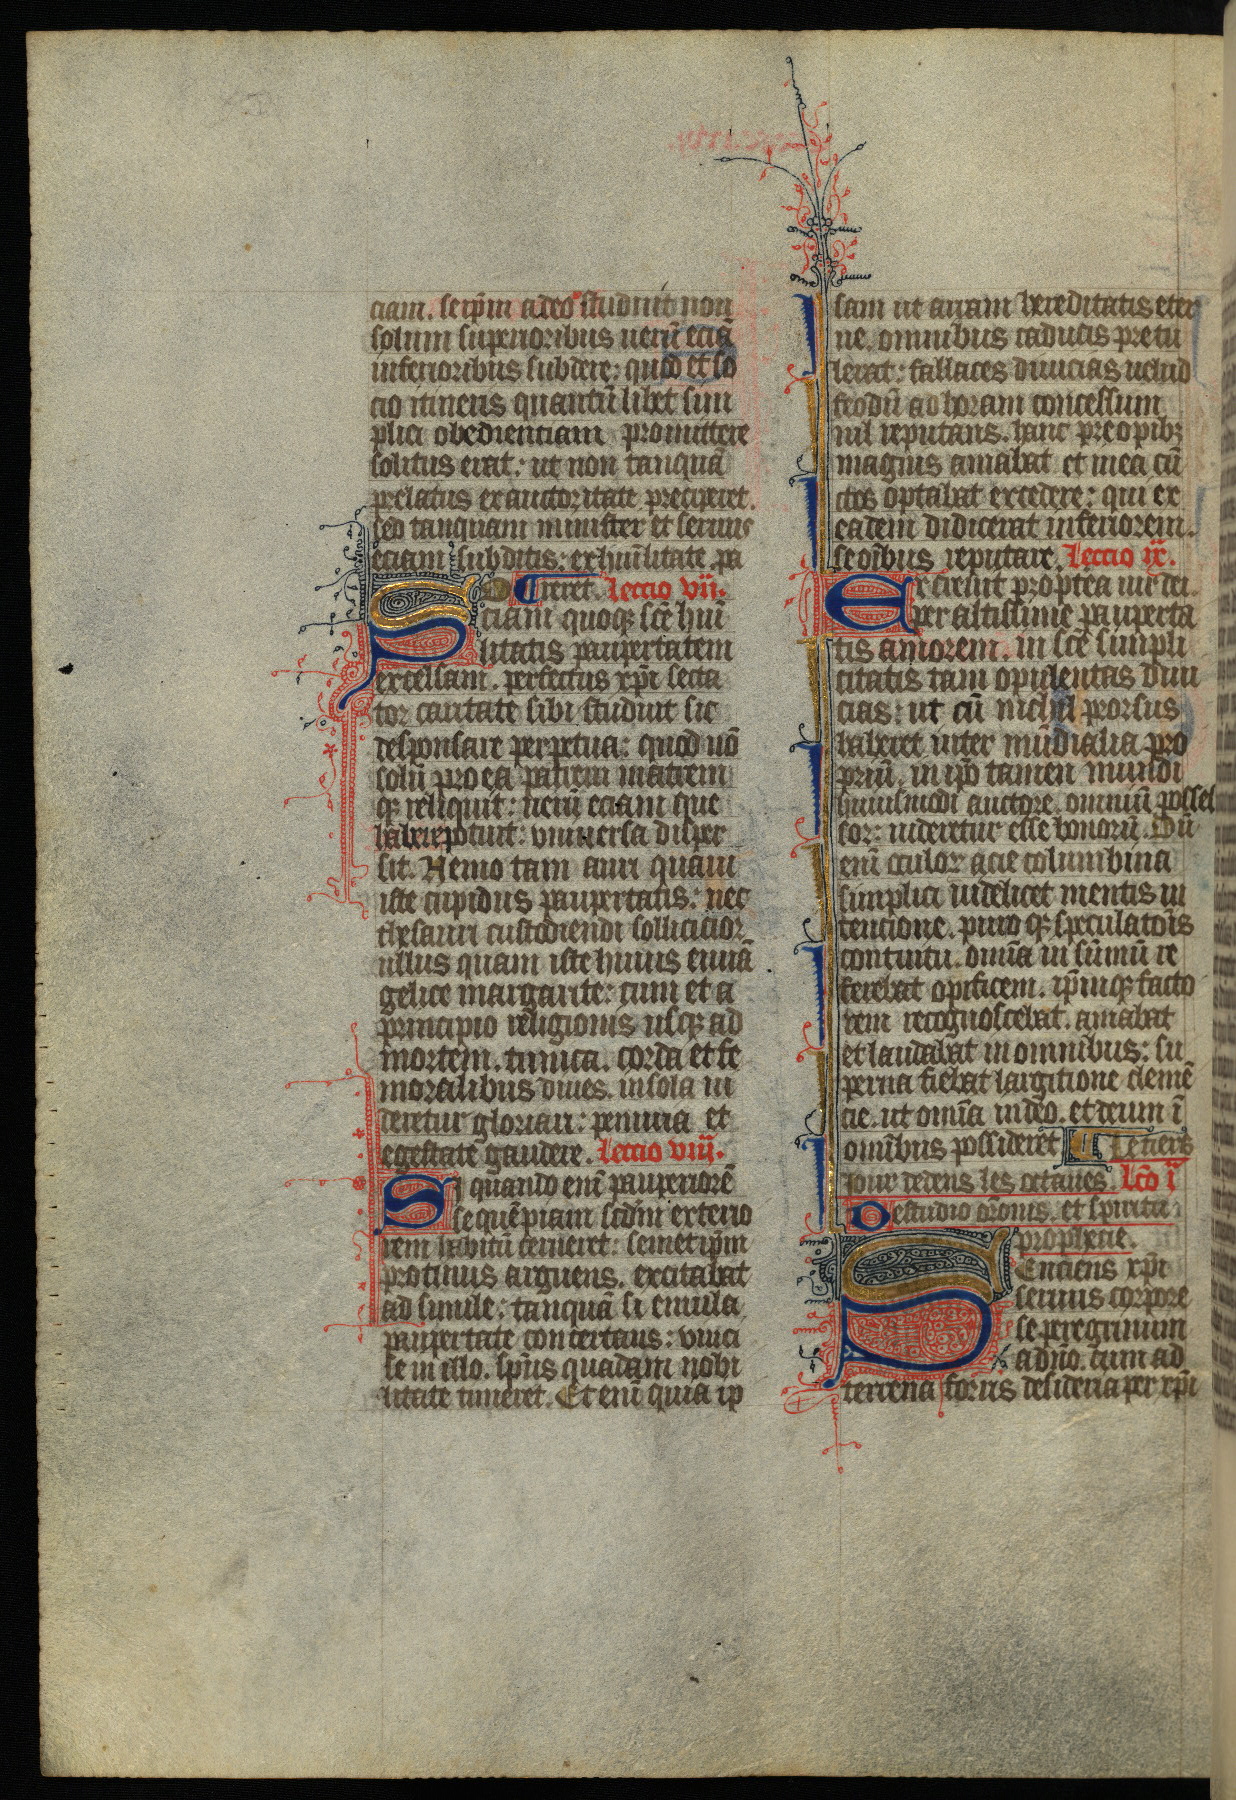 ciam. seip̄m adeo studuit non
solum superioribus uerū eciā
inferioribus subdere: quod et so
cio itineris quantūlibet sim
plici obedientiam promittere
solitus erat: ut non tanquā
prelatus ex auctoritate preciperet.
sed tanquam minister et seruus
eciam subditis: ex huīlitate pa
reret. Leccio vii.
Sciam quoq; scē huī
litatis paupertatem
excellam. perfectus xp̄i secta
tor caritate sibi studuit sic
desponsare perpetua: quod nō
solū pro ea patrem matrem
q; reliquit: uerū eciam que
habere potuit: vniuersa disper
sit. Nemo tam auri quam
iste cupidus paupertatis: nec
thesauri custodiendi sollicicior
ullus quam iste huius euuā
gelice margarite: cum et a
principio religionis usq; ad
mortem. tunica. corda et fe
moralibus diues. in sola ui
deretur gloriari: penuria et
egestate gaudere. Leccio viii.
Si quando enī pauperiorē
se quēpiam scdm̄ exterio
rem habitū cerneret: semetip̄m
protinus arguens. excitabat
ad simile: tanquā si emula
paupertate concertans: vinci
se in illo. sp̄us quadam nobi
litate timeret. Et enī quia ip
sam ut arram hereditatis eter
ne. omnibus caducis pretu
lerat: fallaces diuicias uelud
feodū ad horam concessum
nil reputans. hanc pre opib;
magnis amabat et in ea cū
ctos optabat excedere: qui ex
eadem didicerat inferiorem.
se oībus reputare. Leccio ix.
Ex creuit p̄optea uir dei.
per altissime pauperta
tis amorem. in scē simpli
citatis tam opulentas diui
cias: ut cū nichil prorsus
haberet inter mūdialia pro
priū. in ip̄o tamen mundi
huiusmodi auctore. omniū posses
sor: uideretur esse bonorū. Dū
enī oculor acie columbina
simplici uidelicet mentis in
tencione. puro q; speculatoīs
contuitu. omīa in sūmū re
ferebat opificem. ip̄mq; facto
rem recognoscebat. amabat
et laudabat in omnibus: su
perna fiebat largitione clemē
cie. ut omīa in deo. et deum ī
omībus possideret. Le tiers
iour dedens les octaues. Lc̄o i
De studio or̄onis. et spiritu
prophecie.
Senciens xp̄i
seruus corpore
se peregrinum
a dn̄o. cum ad
terrena foris desideria per xp̄i